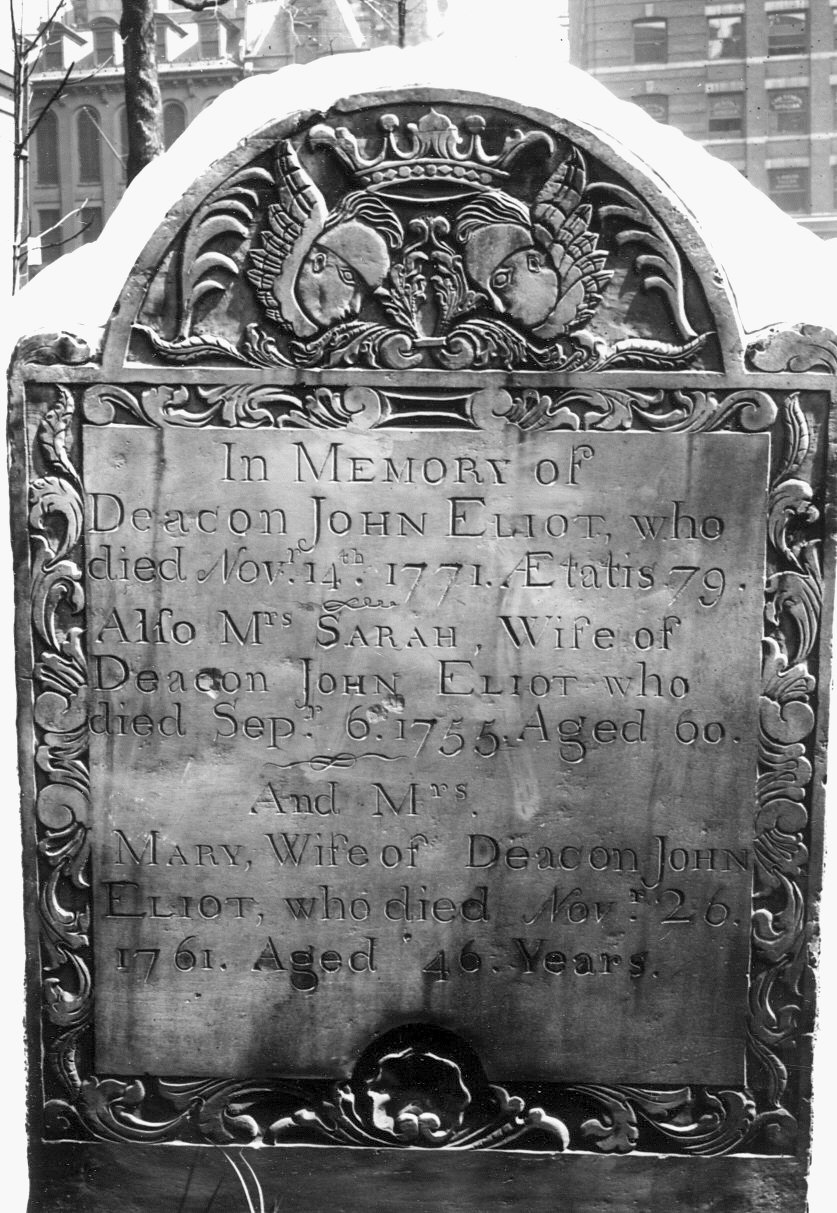 In MEMORY of
Deacon JOHN ELIOT, who
died Novr. 14th. 1771. Ætatis 79.
Alſo Mrs SARAH, Wife of
Deacon JOHN ELIOT who
died Sepr. 6. 1755. Aged 60.
And Mrs.
MARY, Wife of Deacon JOHN
ELIOT, who died Novr. 26.
1761. Aged 46 Years.